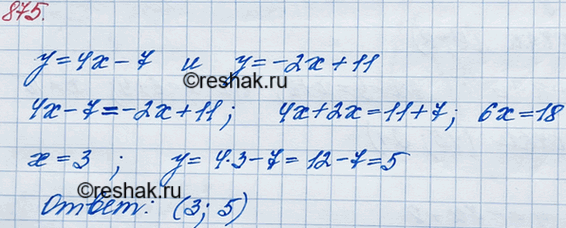 875.
y=4x-7 и y=-2x+11
©reshak.ru
4x-7=-2x+11; 4x+2x=11+7; 6x=18
x=3; y=4·3-7=12-7=5
©reshak.ru
Ответ: (3; 5)